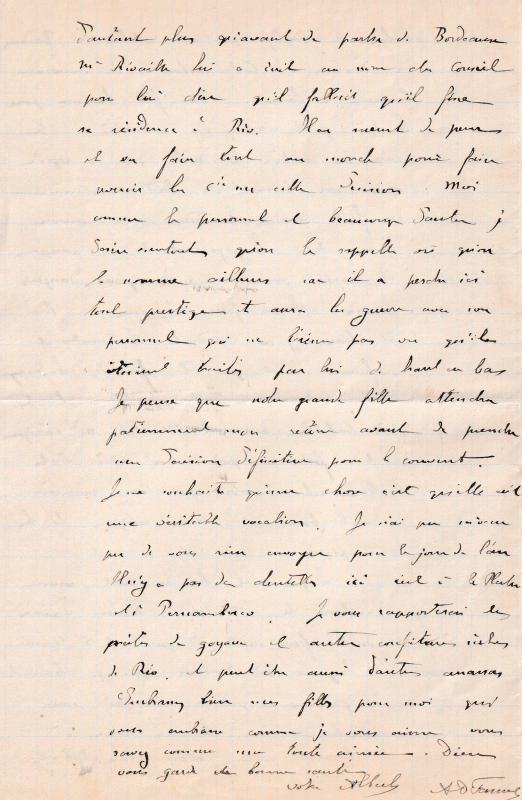 d'autant plus qu'avant de partir de Bordeaux
Mr Rivaille lui a écrit au nom du Conseil
pour lui dire qu'il fallait qu'il fixe
sa résidence à Rio. Il en meurt de peur
et en fera tout au monde pour faire
la Cie cette décision. Moi
comme le personnel et beaucoup d'autres je
serai content qu'on le rappelle ou qu'on
le nomme ailleurs car il a perdu ici
tout prestige et aura la guerre avec son
personnel qui ne l'aime pas vu qu'ils
étaient traités par lui de haut en bas
Je pense que notre grande fille attendra
patiemment mon retour avant de prendre
une décision définitive pour le couvent.
Je ne souhaite qu'une chose c'est qu'elle ait
une véritable vocation. Je n'ai pu
de vous rien envoyer pour le jour de l'an
Il n'y a pas de dentelles ici
et à Pernambuco. Je vous rapporterai des
pâtes de goyave et autres confitures
de Rio, et peut être aussi d'autres ananas
Embrassez bien nos filles pour moi qui
vous embrasse comme je vous aime vous
savez comme ma toute aimée. Dieu
vous garde de bonne santé
votre Albert